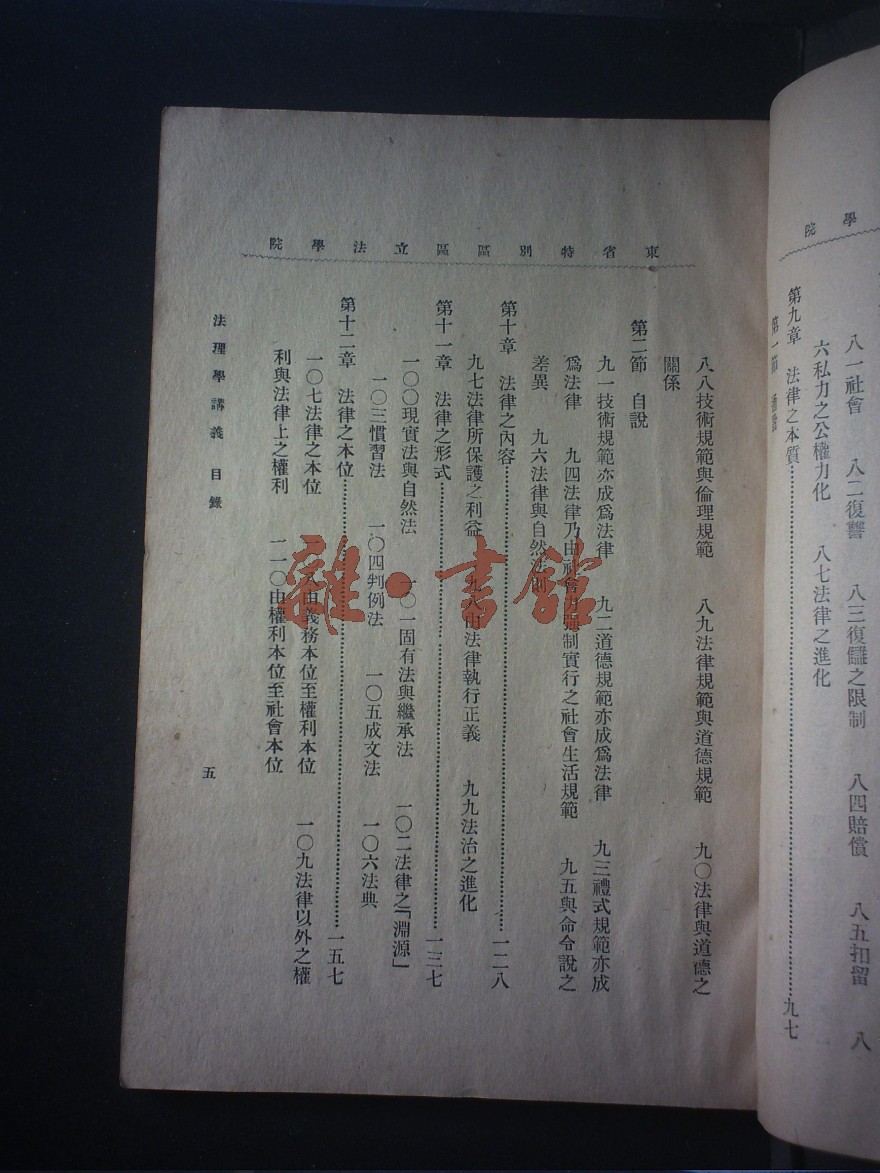 學院
八一社會　八二復讐　八三復讎之限制　八四賠償　八五扣留　八
六私力之公權力化　八七法律之進化
第九章　法律之本質……九七
第一節
東省特別區區立法學院
八八技術規範與倫理規範　八九法律規範與道德規範　九〇法律與道德之
關係
第二節　自說
九一技術規範亦成爲法律　九二道德規範亦成爲法律　九三禮式規範亦成
爲法律　九四法律乃由社會力强制實行之社會生活規範　九五與命令說之
差異　九六法律與自然法則
第十章　法律之內容……一二八
九七法律所保護之利益　九八由法律執行正義　九九法治之進化
第十一章　法律之形式……一三七
一〇〇現實法與自然法　一〇一固有法與繼承法　一〇二法律之「淵源」
一〇三慣習法　一〇四判例法　一〇五成文法　一〇六法典
第十二章　法律之本位……一五七
一〇七法律之本位　一〇八由義務本位至權利本位　一〇九法律以外之權
利與法律上之權利　一一〇由權利本位至社會本位
法理學講義　目錄
五
雜·書館